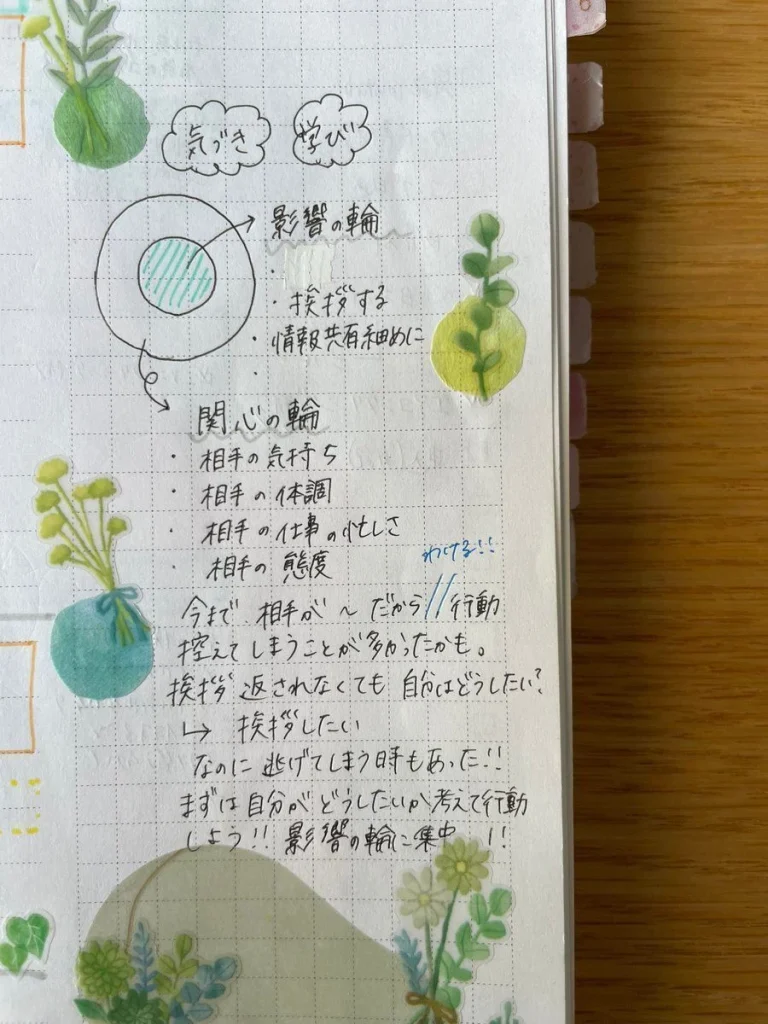 気づき
学び
影響の輪
・
・挨拶する
・情報共有細めに
・
関心の輪
・相手の気持ち
・相手の体調
・相手の仕事の忙しさ
・相手の態度
わける!!
今まで 相手が 〜 だから//行動
控えてしまうことが多かったかも。
挨拶 返されなくても 自分はどうしたい?
↳ 挨拶したい
なのに 逃げてしまう時もあった!!
まずは自分がどうしたいか考えて行動
しよう!! 影響の輪に集中 !!